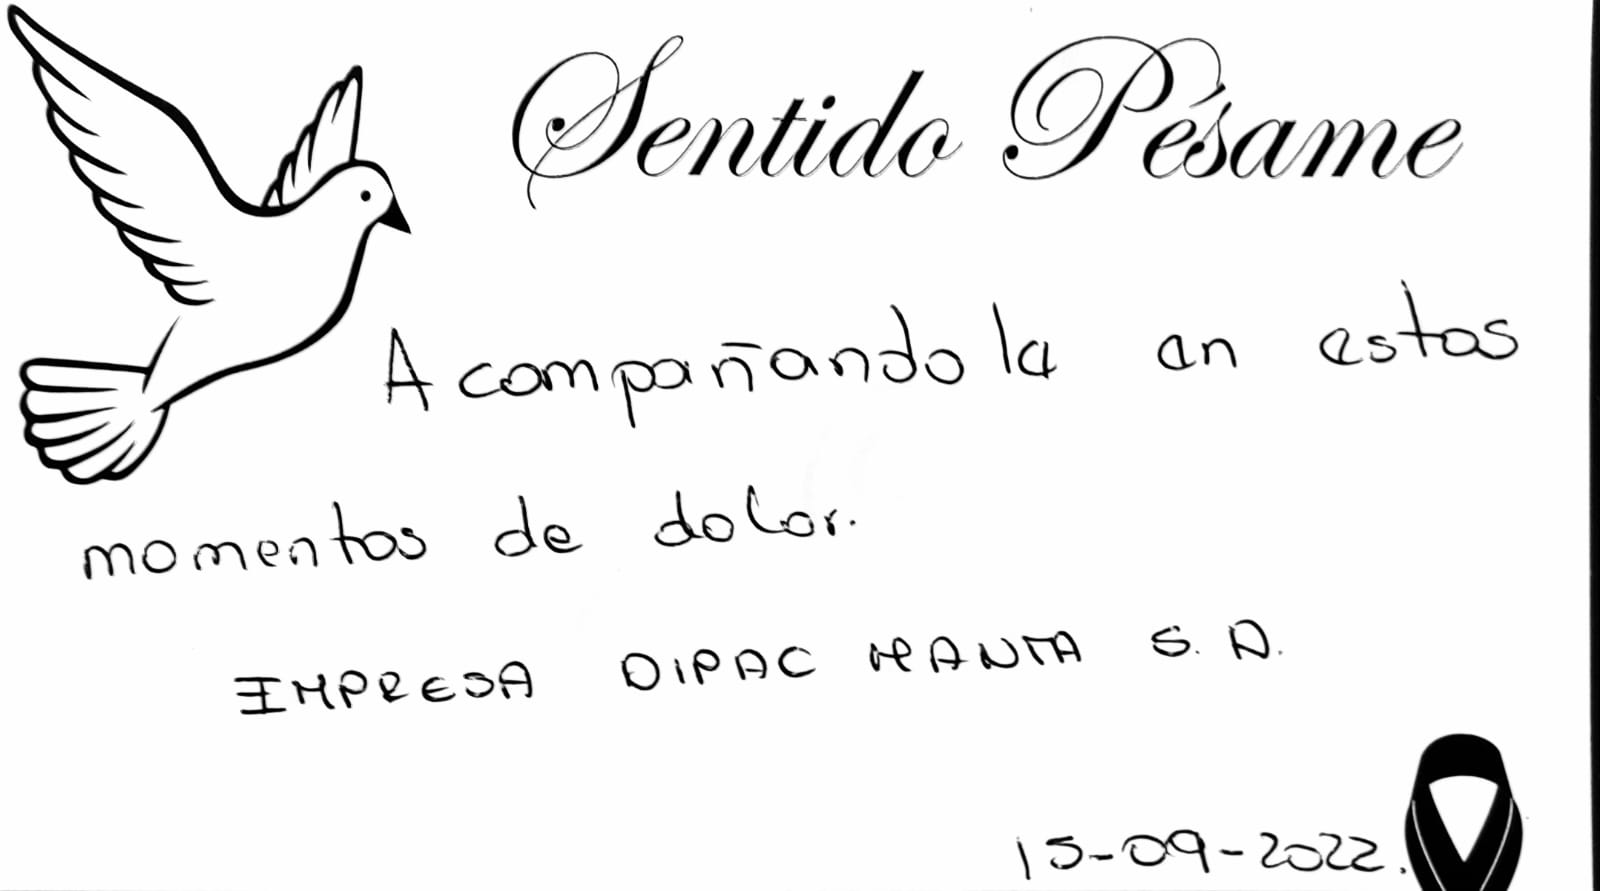 Sentido Pésame
Acompañandola en estos
momentos de dolor.
EMPRESA DIPAC MANTA S.A.
15-09-2022.